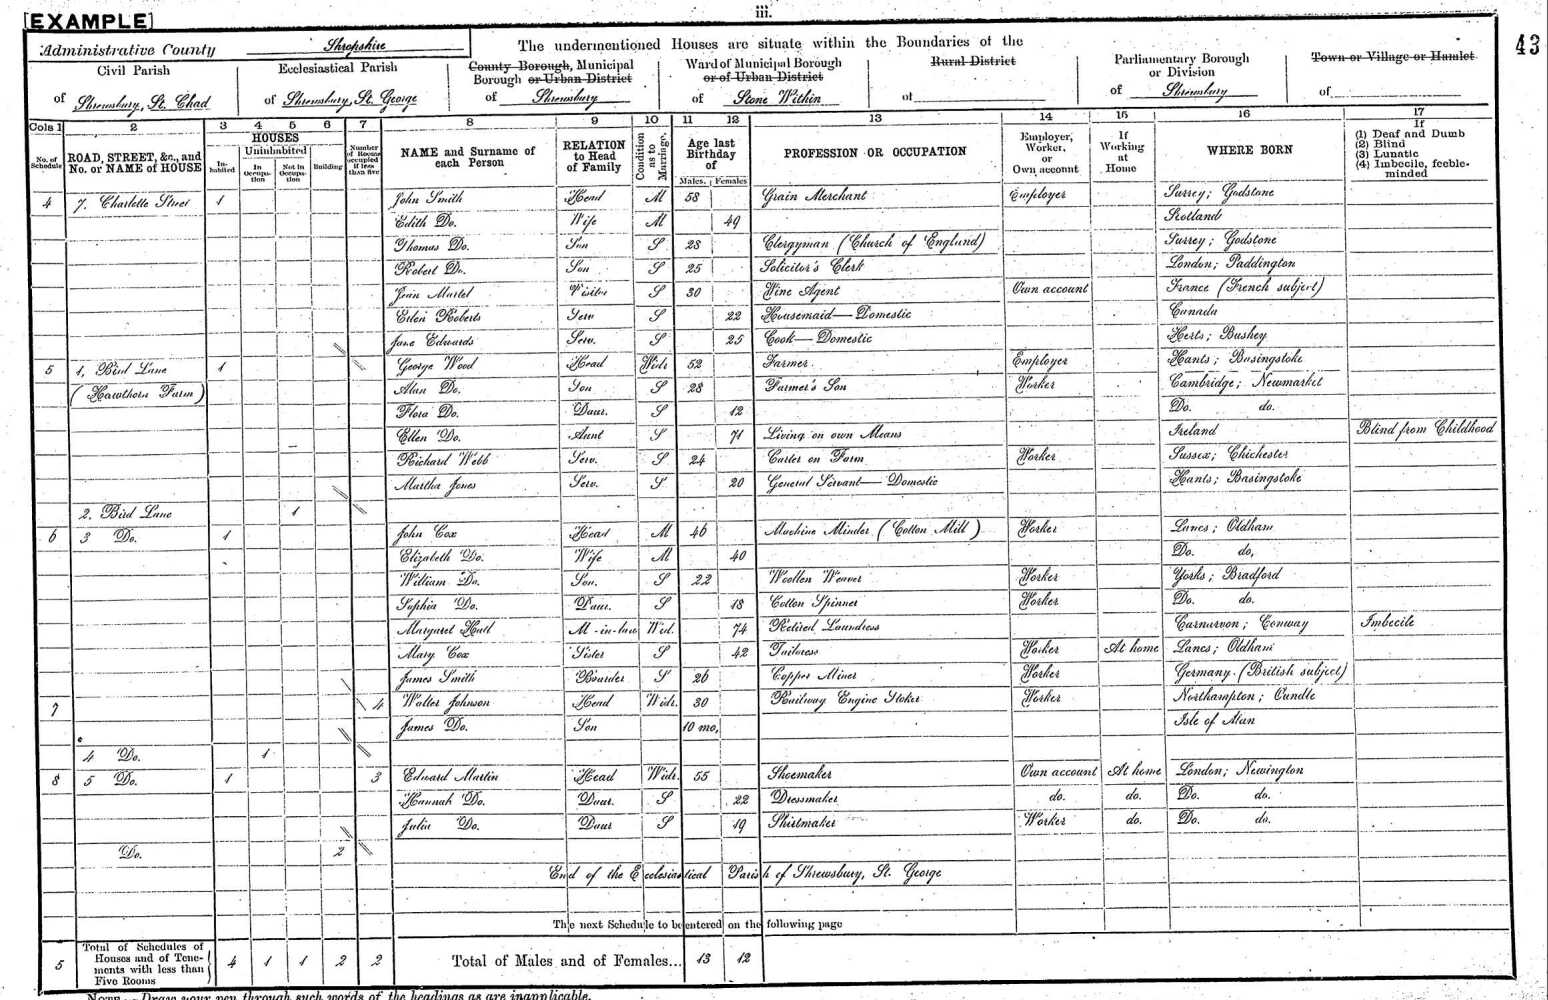 iii.
[EXAMPLE]
43
Administrative County Shropshire The undermentioned Houses are situate within the Boundaries of the
Civil Parish of Shrewsbury, St. Chad
Ecclesiastical Parish of Shrewsbury, St. George
County Borough, Municipal Borough or Urban District of Shrewsbury
Ward of Municipal Borough or of Urban District of Stone Within
Rural District of
Parliamentary Borough or Division of Shrewsbury
Town or Village or Hamlet of
Cols 1 2 3 4 5 6 7 8 9 10 11 12 13 14 15 16 17
No. of Schedule
ROAD, STREET, &c., and No. or NAME of HOUSE
HOUSES
In-habited
Uninhabited
In Occupa-tion
Not in Occupa-tion
Building
Number of Rooms occupied if less than five
NAME and Surname of each Person
RELATION to Head of Family
Condition as to Marriage.
Age last Birthday of
Males. Females
PROFESSION OR OCCUPATION
Employer, Worker, or Own account
If Working at Home
WHERE BORN
If
(1) Deaf and Dumb
(2) Blind
(3) Lunatic
(4) Imbecile, feeble-minded
4 7, Charlotte Street 1 John Smith Head M 58 Grain Merchant Employer Surrey; Godstone
Edith Do. Wife M 49 Scotland
Thomas Do. Son S 28 Clergyman (Church of England) Surrey; Godstone
Robert Do. Son S 25 Solicitor's Clerk London; Paddington
Jean Martel Visitor S 30 Wine Agent Own account France (French subject)
Ellen Roberts Serv S 22 Housemaid—Domestic Canada
Jane Edwards Serv. S 25 Cook—Domestic Herts; Bushey
5 1, Bird Lane 1 George Wood Head Widr 52 Farmer Employer Hants; Basingstoke
(Hawthorn Farm) Alan Do. Son S 28 Farmer's Son Worker Cambridge; Newmarket
Flora Do. Daur. S 12 Do. do.
Ellen Do. Aunt S 71 Living on own Means Ireland Blind from Childhood
Richard Webb Serv. S 24 Carter on Farm Worker Sussex; Chichester
Martha Jones Serv. S 20 General Servant—Domestic Hants; Basingstoke
2, Bird Lane 1
6 3 Do. 1 John Cox Head M 46 Machine Minder (Cotton Mill) Worker Lancs; Oldham
Elizabeth Do. Wife M 40 Do. do,
William Do. Son. S 22 Woollen Weaver Worker Yorks; Bradford
Sophia Do. Daur. S 18 Cotton Spinner Worker Do. do.
Margaret M-in-law Wid. 74 Retired Laundress Carnarvon; Conway Imbecile
Mary Cox Sister S 42 Tailoress Worker At home Lancs; Oldham
James Smith Boarder S 26 Copper Miner Worker Germany. (British subject)
7 4 Walter Johnson Head Widr. 30 Railway Engine Stoker Worker Northampton; Oundle
James Do. Son 10 mo, Isle of Man
4 Do. 1
8 5 Do. 1 3 Edward Martin Head Widr. 55 Shoemaker Own account At home London; Newington
Hannah Do. Daur. S 22 Dressmaker do. do. Do. do.
Julia Do. Daur S 19 Shirtmaker Worker do. Do. do.
Do. 2
End of the Ecclesiastical Parish of Shrewsbury, St. George
The next Schedule to be entered on the following page
5 Total of Schedules of Houses and of Tene-ments with less than Five Rooms 4 1 1 2 2 Total of Males and of Females... 13 12
NOTE.—Draw your pen through such words of the headings as are inapplicable.